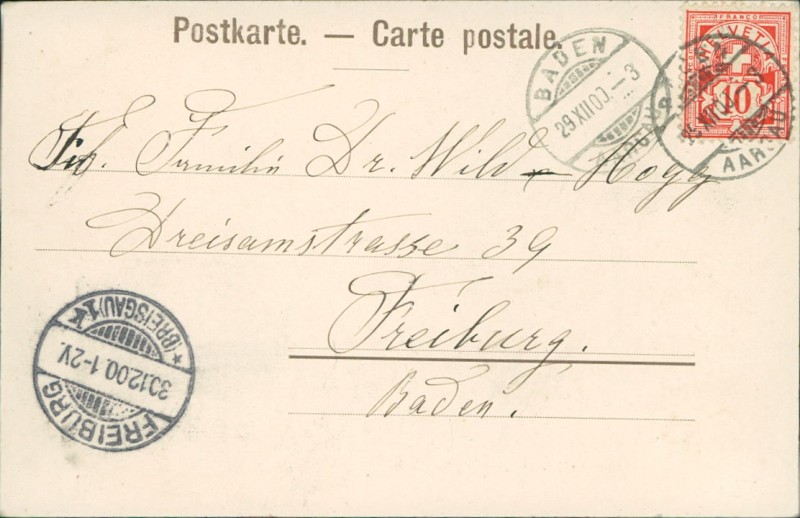 Postkarte. — Carte postale.
BADEN
29.XII.00.–3
FRANCO
HELVETIA
10
AARGAU
Familie Dr. Wild - Hogg
Dreisamstrasse 39
Freiburg.
Baden.
* (BREISGAU) 1 K
30.12.00. 1-2V.
FREIBURG